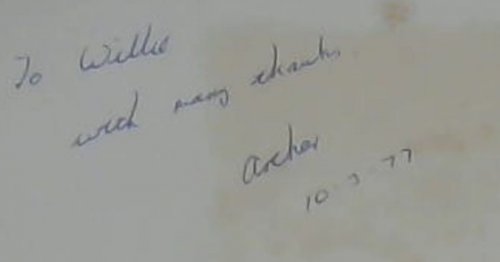 To Willie
with many thanks
Archer
10 7 77